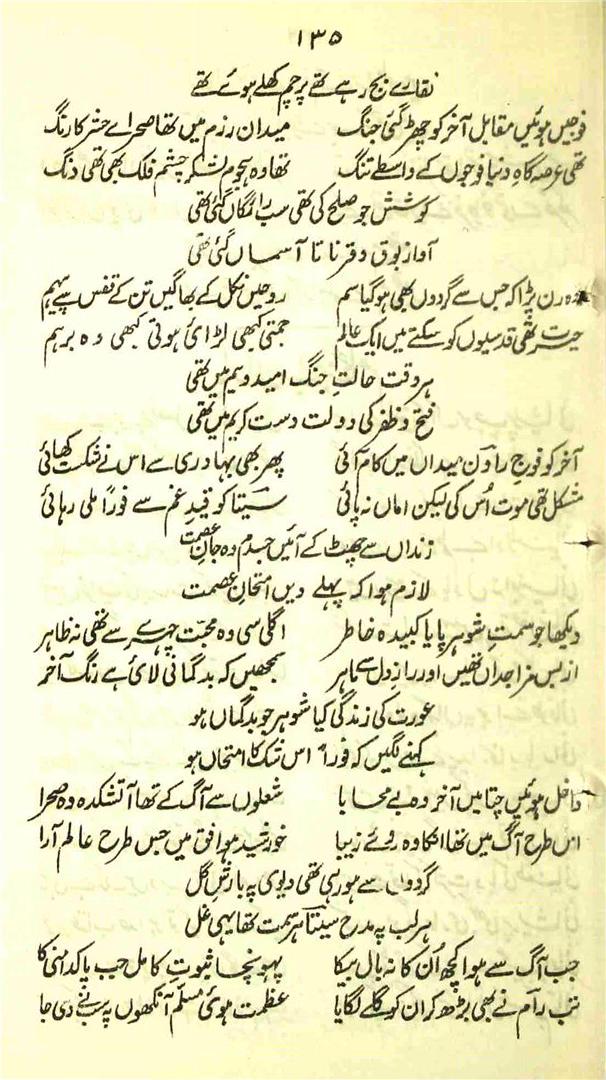 ۱۳۵
نقارے بج رہے تھے پرچم کھلے ہوئے تھے
فوجیں ہوئیں مقابل آخر کو چھڑ گئی جنگ میدان رزم میں تھا صحرائے حشر کا رنگ
تھی عرصہ گاہِ دنیا فوجوں کے واسطے تنگ تھا وہ ہجوم لشکر چشم فلک بھی تھی دنگ
کوشش جو صلح کی تھی سب رائگاں گئی تھی
آواز بوق و قرنا تا آسماں گئی تھی
وہ رن پڑا کہ جس سے گردوں بھی ہو گیا سم روحیں نکل کے بھاگیں تن کے قفس سے پیہم
حیرت تھی قدسیوں کو سکتے میں ایک عالم جمتی کبھی لڑائی ہوتی کبھی وہ برہم
ہر وقت حالتِ جنگ امید و بیم میں تھی
فتح و ظفر کی دولت دست کریم میں تھی
آخر کو فوجِ راون میداں میں کام آئی پھر بھی بہادری سے اس نے شکست کھائی
مشکل تھی موت اُس کی لیکن اماں نہ پائی سیتا کو قیدِ غم سے فوراً ملی رہائی
زنداں سے چھٹ کے آئیں جسدم وہ جانِ عصمت
لازم ہوا کہ پہلے دیں امتحانِ عصمت
دیکھا جو سمتِ شوہر پایا کبیدہ خاطر اگلی سی وہ محبت چہرے سے تھی نہ ظاہر
از بس مزاجداں تھیں اور رازِ دل سے ماہر سمجھیں کہ بدگمانی لائی ہے رنگ آخر
عورت کی زندگی کیا شوہر جو بدگماں ہو
کہنے لگیں کہ فوراً اس شک کا امتحاں ہو
داخل ہوئیں چتا میں آخر وہ بے محابا شعلوں سے آگ کے تھا آتشکدہ وہ صحرا
اس طرح آگ میں تھا انکا وہ روئے زیبا خورشید ہو افق میں جس طرح عالم آرا
گردوں سے ہو رہی تھی دیوی پہ بارشِ گل
ہر لب پہ مدح سیتا ہر سمت تھا یہی غل
جب آگ سے ہوا کچھ اُن کا نہ بال بیکا پہونچا ثبوتِ کامل جب پاکدامنی کا
تب رام نے بھی بڑھ کر ان کو گلے لگایا عظمت ہوئی مسلم آنکھوں پہ سب نے دی جا